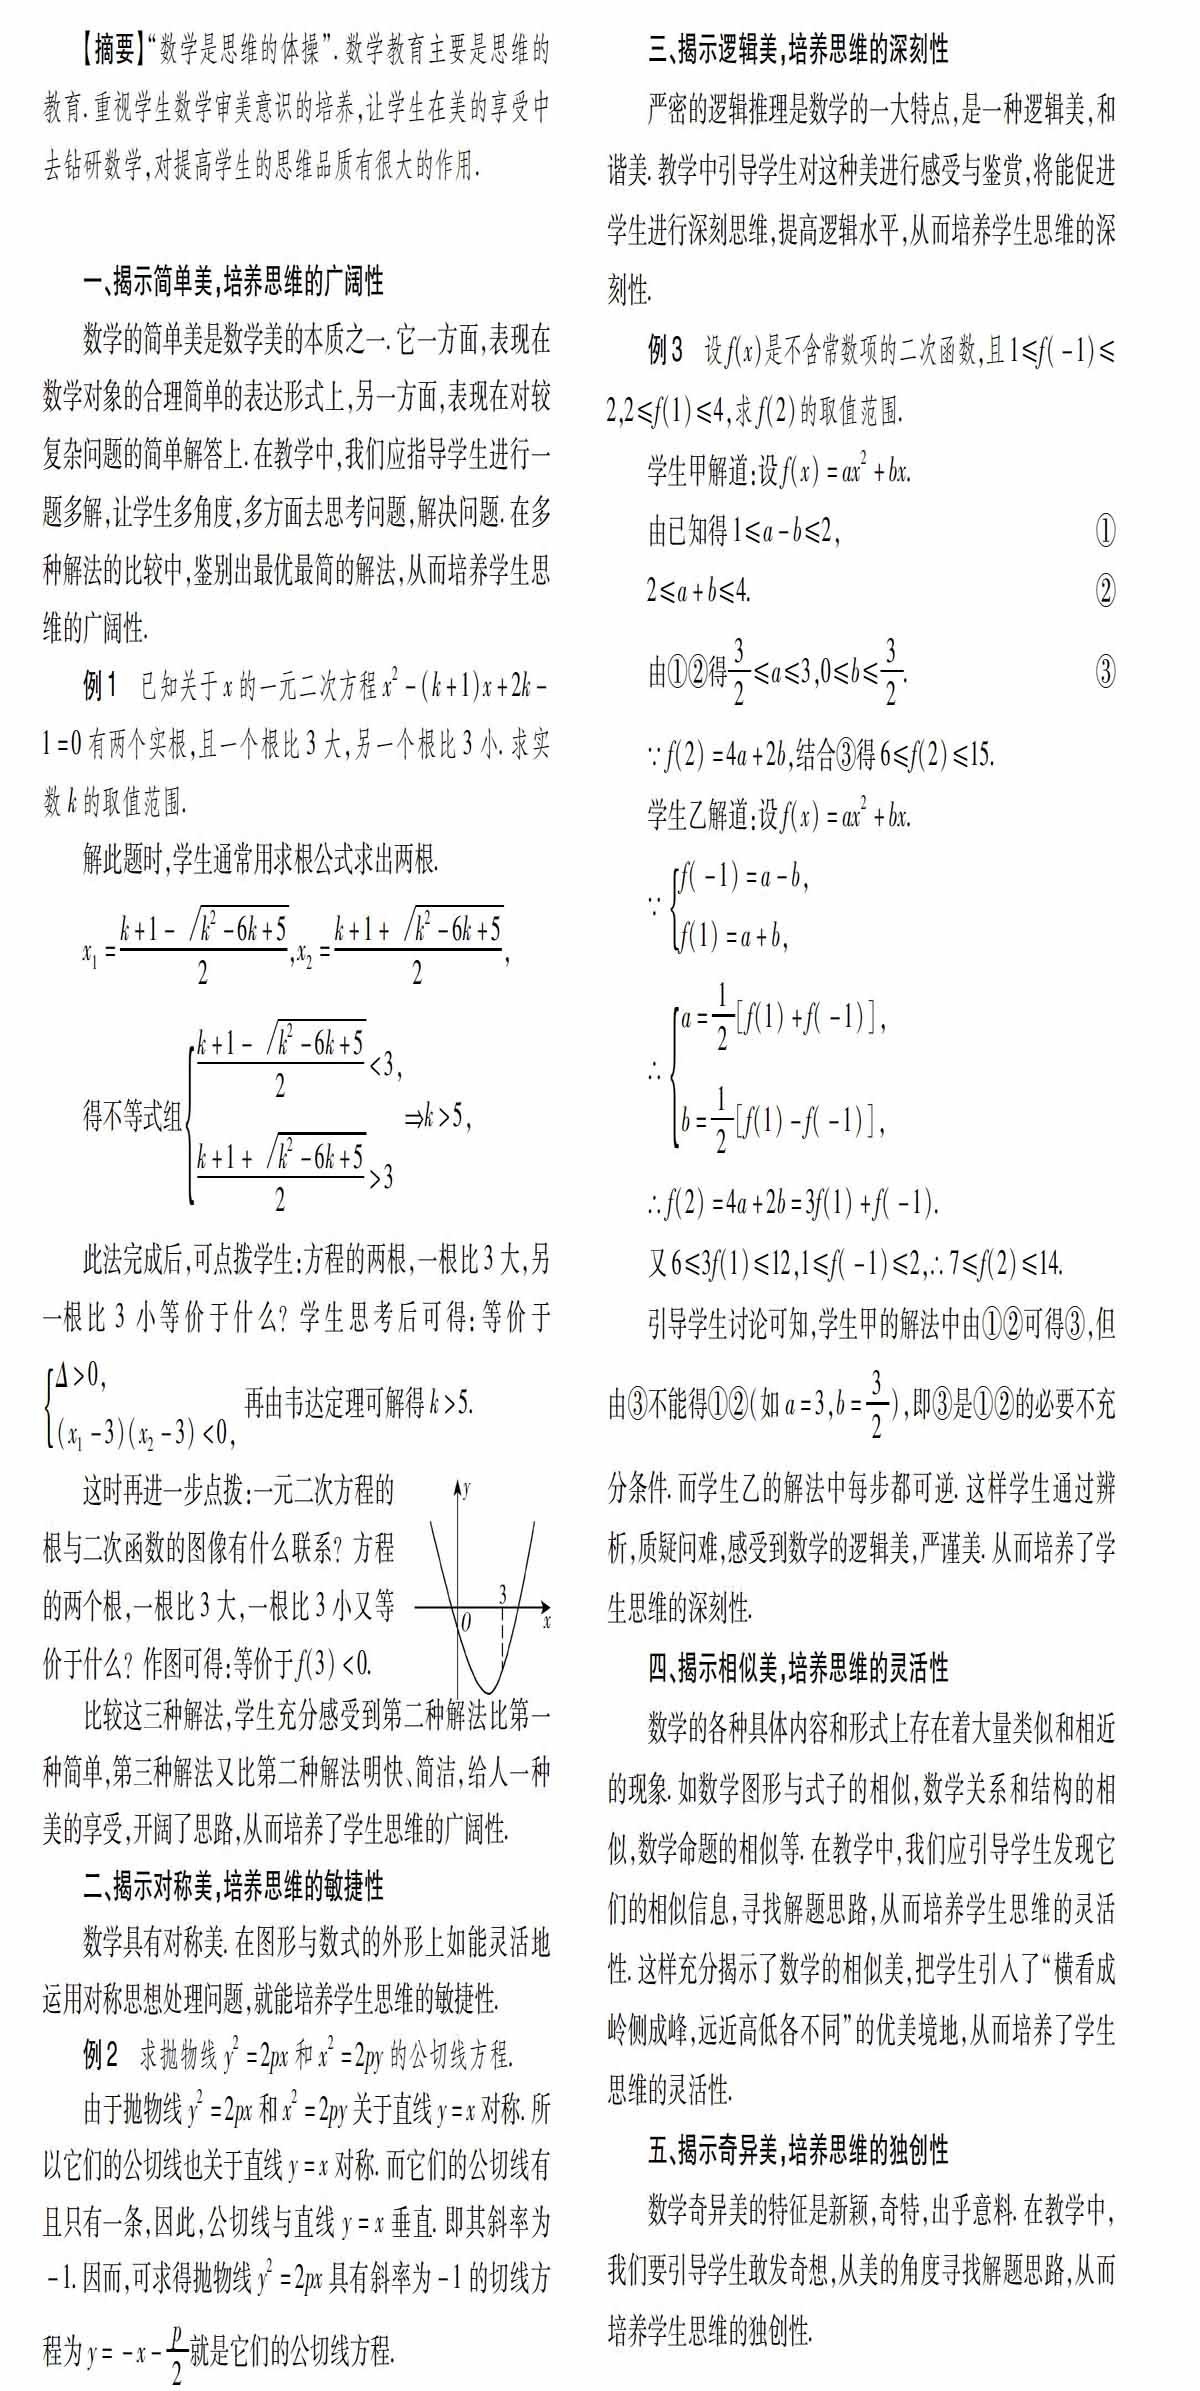 【摘要】“数学是思维的体操”. 数学教育主要是思维的
教育. 重视学生数学审美意识的培养,让学生在美的享受中
去钻研数学,对提高学生的思维品质有很大的作用.
一、揭示简单美,培养思维的广阔性
数学的简单美是数学美的本质之一. 它一方面,表现在
数学对象的合理简单的表达形式上,另一方面,表现在对较
复杂问题的简单解答上. 在教学中,我们应指导学生进行一
题多解,让学生多角度,多方面去思考问题,解决问题. 在多
种解法的比较中,鉴别出最优最简的解法,从而培养学生思
维的广阔性.
例1 已知关于 x 的一元二次方程 x² -(k+1)x+2k-
1=0 有两个实根,且一个根比 3 大,另一个根比 3 小. 求实
数 k 的取值范围.
解此题时,学生通常用求根公式求出两根.
x₁ = (k+1-√(k²-6k+5))/2, x₂ = (k+1+√(k²-6k+5))/2,
得不等式组 { (k+1-√(k²-6k+5))/2 <3,
(k+1+√(k²-6k+5))/2 >3 ⇒k>5,
此法完成后,可点拨学生:方程的两根,一根比 3 大,另
一根比 3 小等价于什么? 学生思考后可得: 等价于
{ Δ>0,
(x₁-3)(x₂-3)<0, 再由韦达定理可解得 k>5.
这时再进一步点拨:一元二次方程的
根与二次函数的图像有什么联系? 方程
的两个根,一根比 3 大,一根比 3 小又等
价于什么? 作图可得:等价于 f(3)<0.
y
3
O
x
比较这三种解法,学生充分感受到第二种解法比第一
种简单,第三种解法又比第二种解法明快、简洁,给人一种
美的享受,开阔了思路,从而培养了学生思维的广阔性.
二、揭示对称美,培养思维的敏捷性
数学具有对称美. 在图形与数式的外形上如能灵活地
运用对称思想处理问题,就能培养学生思维的敏捷性.
例2 求抛物线 y² =2px 和 x² =2py 的公切线方程.
由于抛物线 y² =2px 和 x² =2py 关于直线 y=x 对称. 所
以它们的公切线也关于直线 y=x 对称. 而它们的公切线有
且只有一条,因此,公切线与直线 y=x 垂直. 即其斜率为
-1. 因而,可求得抛物线 y² =2px 具有斜率为 -1 的切线方
程为 y=-x-p/2 就是它们的公切线方程.
三、揭示逻辑美,培养思维的深刻性
严密的逻辑推理是数学的一大特点,是一种逻辑美,和
谐美. 教学中引导学生对这种美进行感受与鉴赏,将能促进
学生进行深刻思维,提高逻辑水平,从而培养学生思维的深
刻性.
例3 设 f(x) 是不含常数项的二次函数,且 1≤f(-1)≤
2,2≤f(1)≤4,求 f(2) 的取值范围.
学生甲解道:设 f(x)=ax² +bx.
由已知得 1≤a-b≤2, ①
2≤a+b≤4. ②
由①②得 3/2≤a≤3,0≤b≤3/2. ③
∵f(2)=4a+2b,结合③得 6≤f(2)≤15.
学生乙解道:设 f(x)=ax² +bx.
∵ { f(-1)=a-b,
f(1)=a+b,
∴ { a=1/2[f(1)+f(-1)],
b=1/2[f(1)-f(-1)],
∴f(2)=4a+2b=3f(1)+f(-1).
又 6≤3f(1)≤12,1≤f(-1)≤2,∴7≤f(2)≤14.
引导学生讨论可知,学生甲的解法中由①②可得③,但
由③不能得①②(如 a=3,b=3/2),即③是①②的必要不充
分条件. 而学生乙的解法中每步都可逆. 这样学生通过辨
析,质疑问难,感受到数学的逻辑美,严谨美. 从而培养了学
生思维的深刻性.
四、揭示相似美,培养思维的灵活性
数学的各种具体内容和形式上存在着大量类似和相近
的现象. 如数学图形与式子的相似,数学关系和结构的相
似,数学命题的相似等. 在教学中,我们应引导学生发现它
们的相似信息,寻找解题思路,从而培养学生思维的灵活
性. 这样充分揭示了数学的相似美,把学生引入了“横看成
岭侧成峰,远近高低各不同”的优美境地,从而培养了学生
思维的灵活性.
五、揭示奇异美,培养思维的独创性
数学奇异美的特征是新颖,奇特,出乎意料. 在教学中,
我们要引导学生敢发奇想,从美的角度寻找解题思路,从而
培养学生思维的独创性.